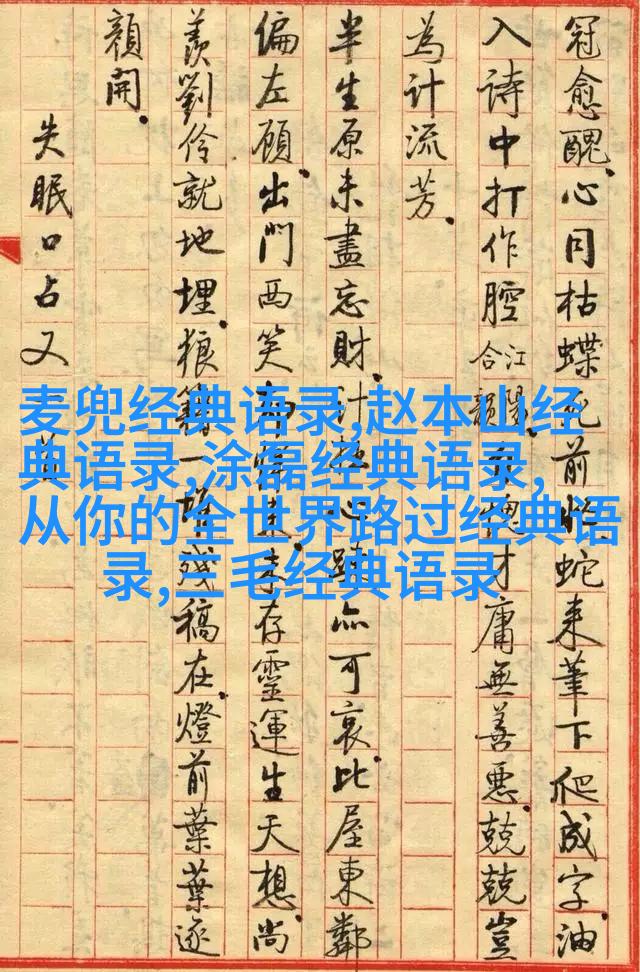 冠愈醜.心同枯蝶死前忙.蛇来筆下爬成字.油
入詩中打作腔.江陽合韻 才庸無善惡.兢兢豈
為計流芳.
半生原未盡忘財.計 心 亦可哀.比屋東鄰
偏左顧.出門西笑 未存靈運生天想.尚
羨劉伶就地埋.狼藉一堆残稿在.燈前葉葉逐
顏開.
失眠口占又一首
麦兜经典语录,赵本山经
典语录,涂磊经典语录,
从你的全世界路过经典语
录,三毛经典语录